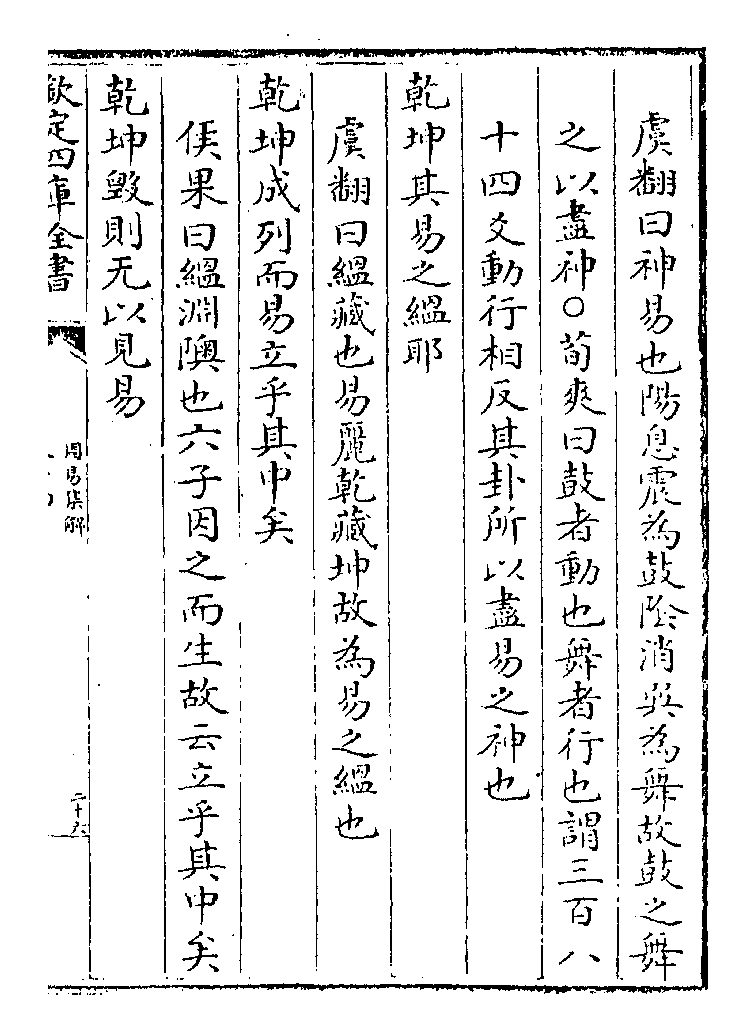 虞翻曰神易也陽息震為鼓陰消巽為舞故鼓之舞
之以盡神○荀爽曰鼓者動也舞者行也謂三百八
十四爻動行相反其卦所以盡易之神也
乾坤其易之縕耶
虞翻曰縕藏也易麗乾藏坤故為易之縕也
乾坤成列而易立乎其中矣
侯果曰縕淵隩也六子因之而生故云立乎其中矣
乾坤毀則无以見易
欽定四庫全書
周易集解
二十六